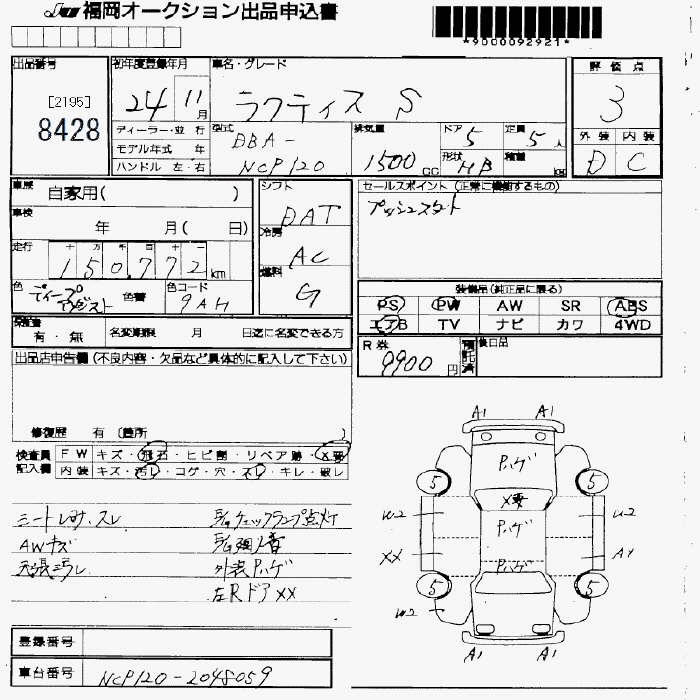 Ju 福岡オークション出品申込書
*9000092921*
出品番号
[2195]
8428
初年度登録年月
24 11月
車名・グレード
ラクティス S
評価点
3
外装 内装
D C
ディーラー・並行
モデル年式 年
ハンドル 左・右
型式
DBA-
NCP120
排気量
1500 CC
ドア 5
定員 5人
形状 HB
積載 KG
車歴 自家用( )
車検 年 月( 日)
走行
十万千百十
150,772km
色 ディープアメジスト
色替
色コード 9AH
シフト DAT
冷房 AC
燃料 G
セールスポイント (正常に機能するもの)
プッシュスタート
装備品(純正品に限る)
PS PW AW SR ABS
エアB TV ナビ カワ 4WD
保証書 有・無
名変期限 月 日迄に名変できる方
R券 9900円
預託済
後日品
出品店申告欄 (不良内容・欠品など具体的に記入して下さい)
修復歴 有 〔箇所 〕
検査員記入欄
FW キズ・飛石・ヒビ割・リペア跡・X要
内装 キズ・汚レ・コゲ・穴・スレ・キレ・破レ
シートヨゴレ・スレ
AWキズ
天張汚レ
E/gチェックランプ点灯
E/g異音
外装Pハゲ
左RドアXX
A1 A1
Pハゲ
5 5
X要
W2 U2
Pハゲ
XX A1
Pハゲ
5 5
W2
A1 A1
登録番号
車台番号 NCP120-2048059